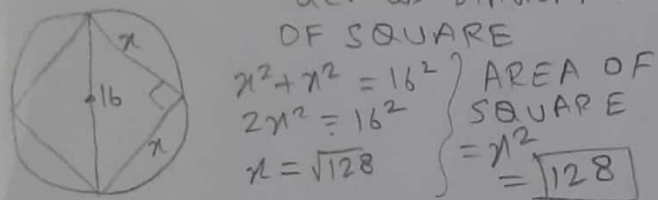 OF SQUARE
x
16
x
x² + x² = 16²
2x² = 16²
x = √128
AREA OF
SQUARE
= x²
= 128